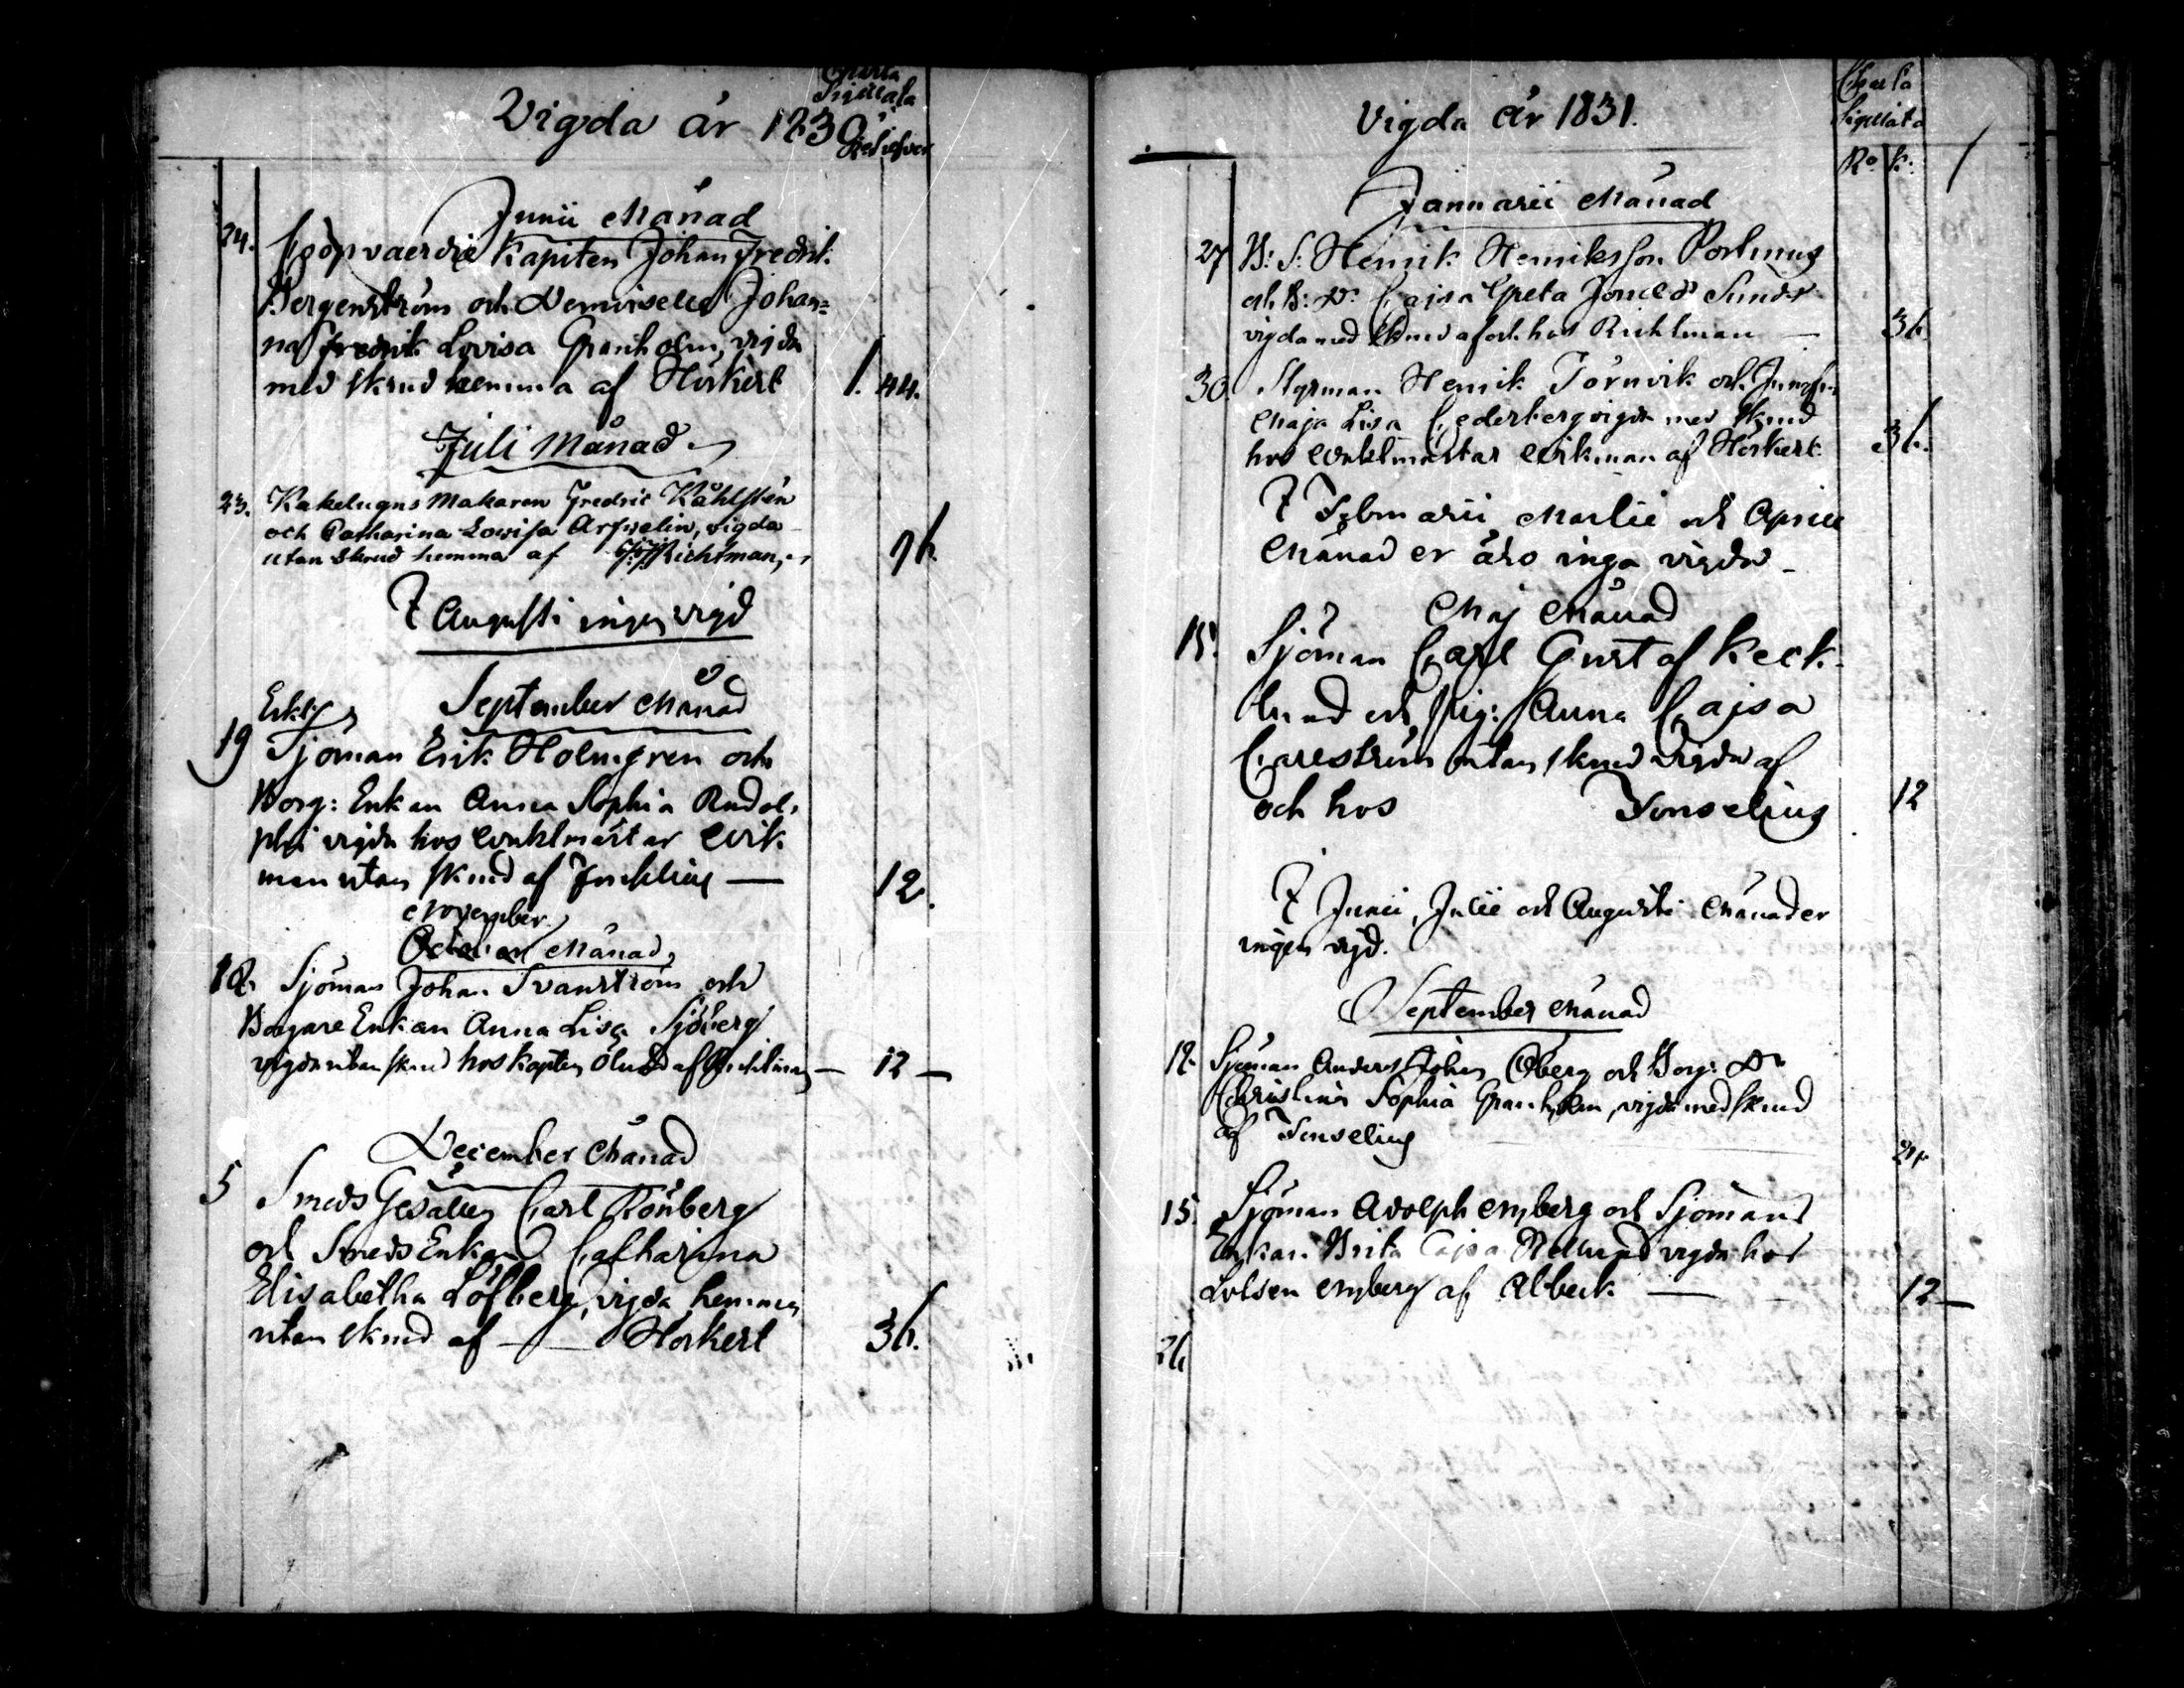 Vigda år 1830
Charta
Sigillata
Junii Månad
24. Coopvaerdie Kapiten Johan Fredrik
Bergenström och Demoiselle Johan=
na Fredrik Lovisa Granholm, vigda
med skrud hemma af Horkert 1. 44.
Juli Månad
23. Kakelugns Makaren Fredric Kåhlstén
och Catharina Lowisa Arfvelin, vigda
utan skrud hemma af Richtman,
I Augusti ingen vigd
September Månad
19 Sjöman Erik Holmgren och
Borg: Enkan Anna Sophia Rudol-
phi vigda hos Wiktmästar Wik
man utan skrud af 12.
November
October Månad
18. Sjöman Johan Svanström och
Borgare Enkan Anna Lisa Sjöberg
vigda utan skrud hos Kapten Ölund af 12
December Månad
5 Smeds Gesällen Carl Rönberg
och Smeds Enkan Catharina
Elisabetha Löfberg, vigda hemma
utan skrud af Horkert 36.
Vigda År 1831.
Charta
Sigillata
Ro. k.
Januarii Månad
27 B: S: Henrik Henriksson
och B: D: Cajsa Greta Sund
vigda med skrud af och hos Richtman 36
30. Styrman Henrik Törnvik och Jungfru
Maja Lisa Cederberg vigda med skrud
hos Wiktmästar Wikman af Horkert. 36.
I Februarii Martii och Aprill
Månader äro inga vigda
Maj Månad
15. Sjöman Carl Gustaf Keck-
lund och pig: Anna Cajsa
Carlström utan skrud vigda af
och hos Fonselius 12
I Junii, Julii och Augusti Månader
ingen vigd.
September Månad
12. Sjöman Anders Johan Öberg och Borg: Dr
Christina Sophia Granholm, vigda med skrud
af Fonselius 24
15. Sjöman Adolph Nyberg och Sjömans
Enkan Brita Cajsa vigda hos
Lotsen Nyberg af Ahlbeck 12
26